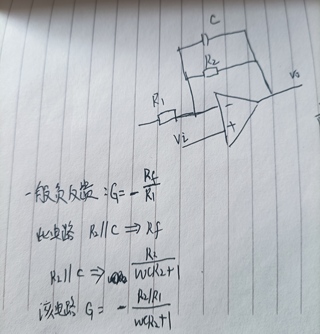 C
R2
R1
Vo
Vi
一般负反馈:G=-Rf/R1
此电路 R2//C⇒Rf
R2//C⇒R2/wCR2+1
该电路 G=-R2/R1/wCR2+1